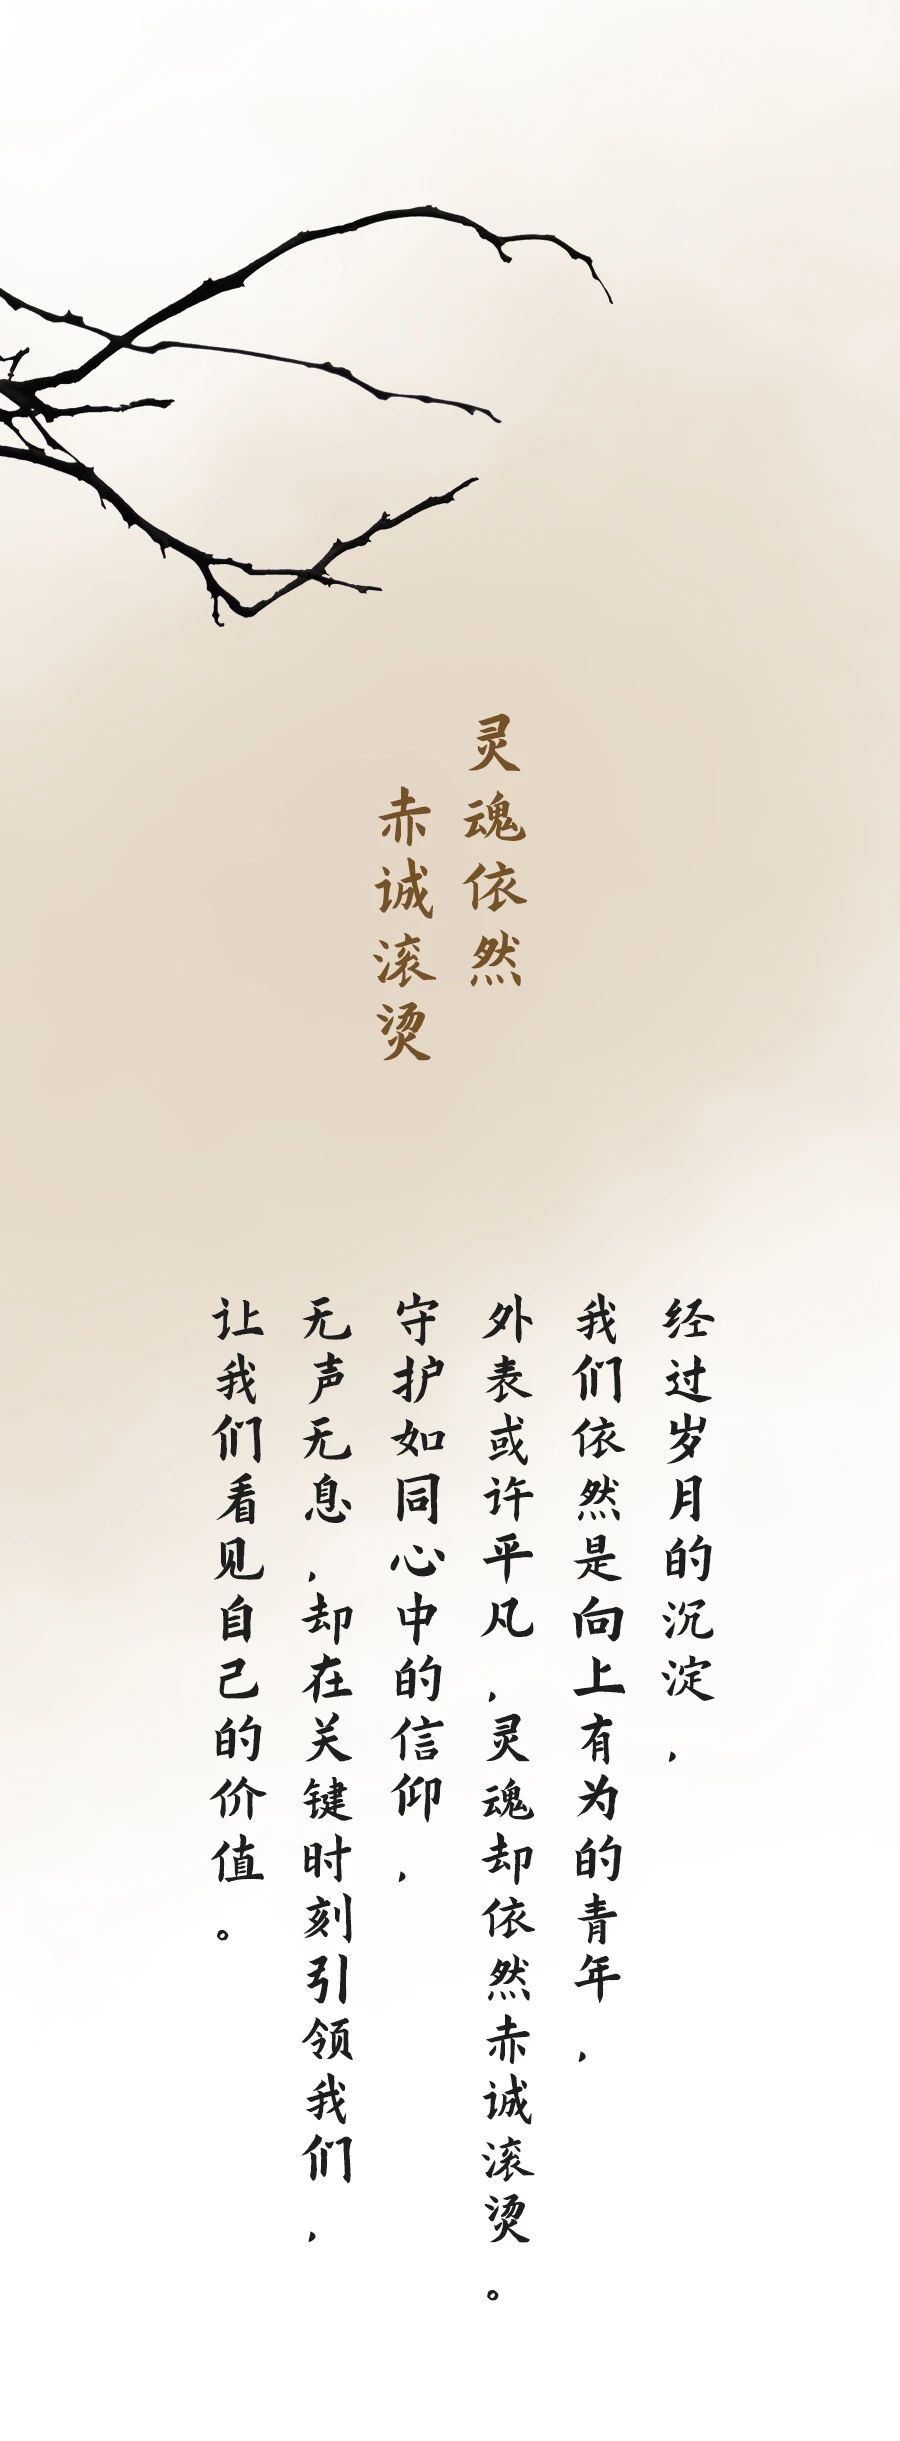 灵魂依然
赤诚滚烫
经过岁月的沉淀，
我们依然是向上有为的青年，
外表或许平凡，灵魂却依然赤诚滚烫。
守护如同心中的信仰，
无声无息，却在关键时刻引领我们，
让我们看见自己的价值。